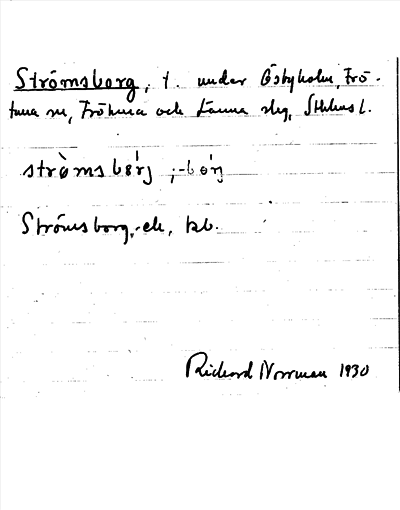 Strömsborg, t. under Östyholm, Frö-
tuna sn, Frötuna och Länna skg, Sthlms l.
strömsbörj ; -börj
Strömsborg, -ek, kb.
Richard Norrman 1930